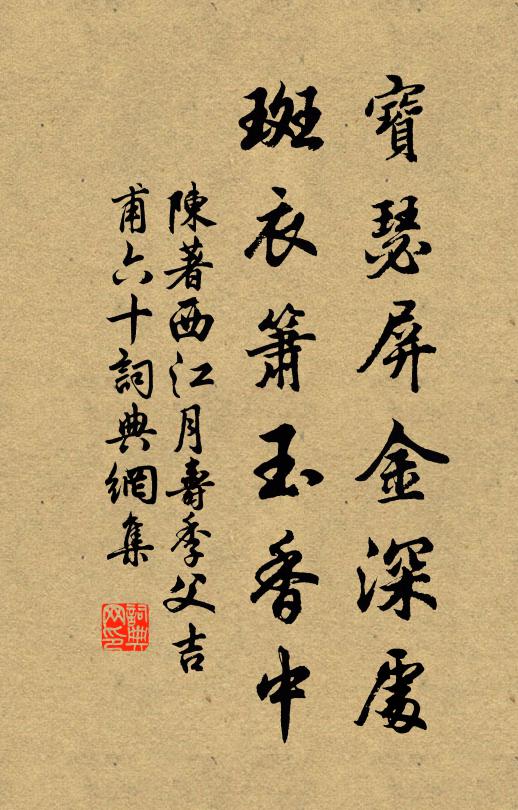 寶瑟屏金深處
斑衣簫玉香中
陳著西江月壽季父吉
甫六十詞典網集
詞典网印